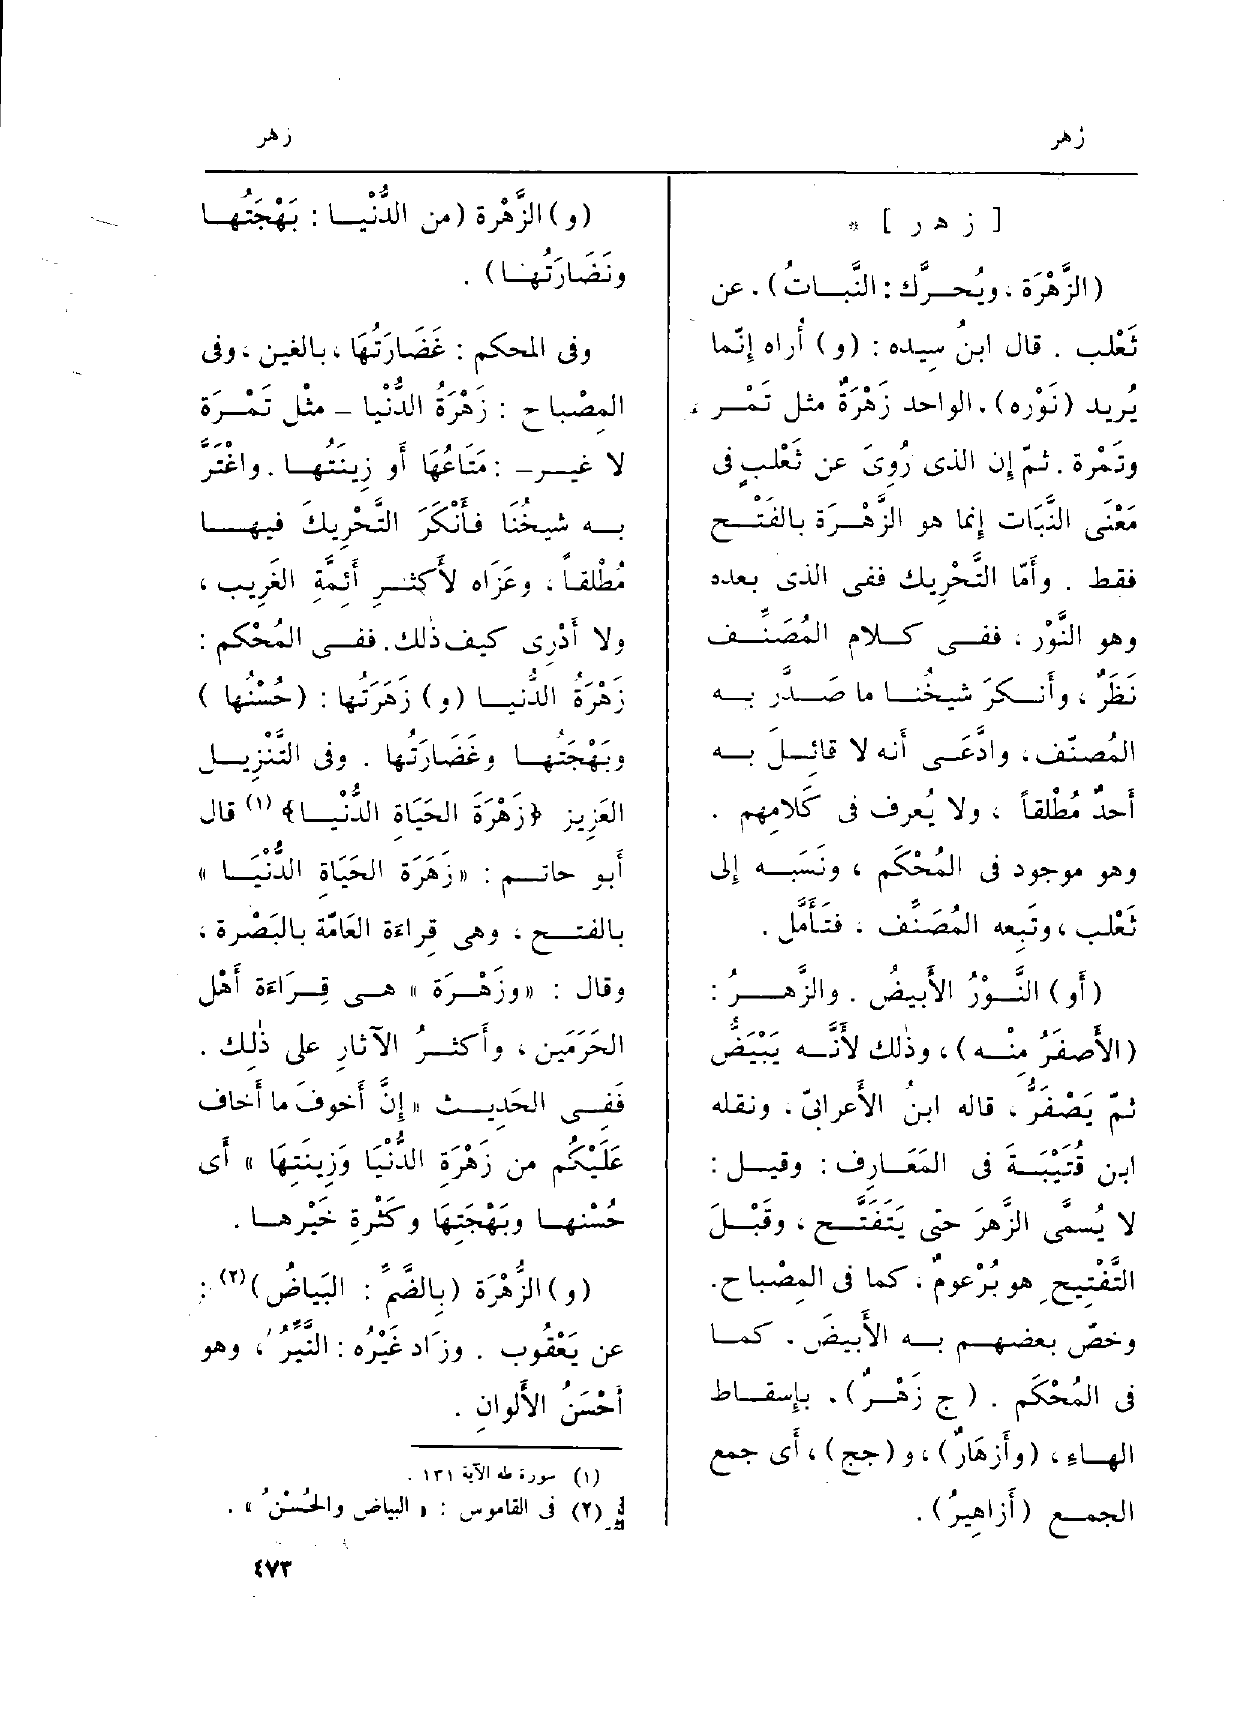 زهر
زهر
[ ز ه ر ] *
(الزَّهْرَة ، ويُحـرَّك : النَّبـاتُ) . عن
ثَعْلب . قال ابنُ سيده : (و) أُراه إنّما
يُريد (نَوْره) . الواحد زَهْرَةٌ مثل تَمْـر ،
وتَمْرة . ثمّ إن الذى رُوِىَ عن ثَعْلبٍ فى
مَعْنَى النَّبَات إنما هو الزَّهْـرَة بالفَتْـح
فقط . وأَمّا التَّحْرِيك ففى الذى بعده
وهو النَّوْر ، ففـى كـلام المُصَنِّـف
نَظَرٌ ، وأَنـكرَ شيخُنـا ما صَـدَّر بـه
المُصنّف ، وادَّعَـى أَنه لا قائـلَ بـه
أَحدٌ مُطْلقاً ، ولا يُعرف فى كَلامِهم .
وهو موجود فى المُحْكَم ، ونَسَبـه إلى
ثَعْلب ، وتَبعه المُصَنَّف ، فتَأَمَّل .
(أَو) النَّـوْرُ الأَبيضُ . والزَّهـرُ :
(الأَصفَرُ مِنْـه) ، وذٰلك لأَنَّـه يَبْيَضُّ
ثمّ يَصْفَرُّ ، قاله ابنُ الأَعرابىّ . ونقله
ابن قُتَيْبَـة فى المَعَـارف : وقيـل :
لا يُسمَّى الزَّهرَ حتى يَتَفَتَّـح ، وقَبْـلَ
التَّفْتِيحِ هو بُرْعومٌ ، كما فى المِصْباح .
وخصّ بعضُهـم بـه الأَبيضَ . كمـا
فى المُحْكَم . ( ج زَهْـرٌ) . بإِسقـاط
الهـاءِ ، (وأَزهَارٌ) ، و (جج) ، أَى جمع
الجمـع (أَزاهِيرُ) .
(و) الزَّهْرَة (من الدُّنْيـا : بَهْجَتُهـا
ونَضَارَتُهـا) .
وفى المحكم : غَضَارَتُهَا ، بالغين ، وفى
المِصْباح : زَهْرَةُ الدُّنْيا – مثل تَمْـرَة
لا غيـر– : مَتَاعُهَا أَو زِينتُهـا . واغْتَرَّ
بـه شيخُنَا فأَنْكَرَ التَّحْرِيكَ فيهـا
مُطْلقاً ، وعَزَاه لأَكثـرِ أَئمَّةِ الغَرِيب ،
ولا أَدْرى كيف ذٰلك . ففـى المُحْكم :
زَهْرَةُ الدُّنْيـا (و) زَهَرَتُها : (حُسْنُها )
وبَهْجَتُهـا وغَضَارتُها . وفى التَّنْزِيـل
العَزِيز ﴿زَهْرَةَ الحَيَاةِ الدُّنْيـا﴾ (١) قال
أَبو حاتـم : «زَهَرَة الحَيَاة الدُّنْيَـا »
بالفتـح ، وهى قِراءَة العَامّة بالبَصْرة ،
وقال : «وزَهْـرَة » هـى قِـرَاءَة أَهْل
الحَرَمَين ، وأَكثـرُ الآثارِ على ذٰلك .
ففـى الحَديـث « إِنَّ أَخوفَ ما أَخاف
عَلَيْكُم من زَهْرَةِ الدُّنْيَا وَزِينَتِهَا » أَى
حُسْنِهـا وبَهْجَتِهَا وكَثْرةِ خَيْرهـا .
(و) الزُّهْرَة (بالضَّمّ : البَيَاضُ) (٢) :
عن يَعْقُوب . وزاد غَيْرُه : النَّيِّرُ ، وهو
أَحْسَنُ الأَلْوانِ .
(١) سورة طه الآية ١٣١ .
(٢) فى القاموس : « البياض والحُسْنُ » .
٤٧٣